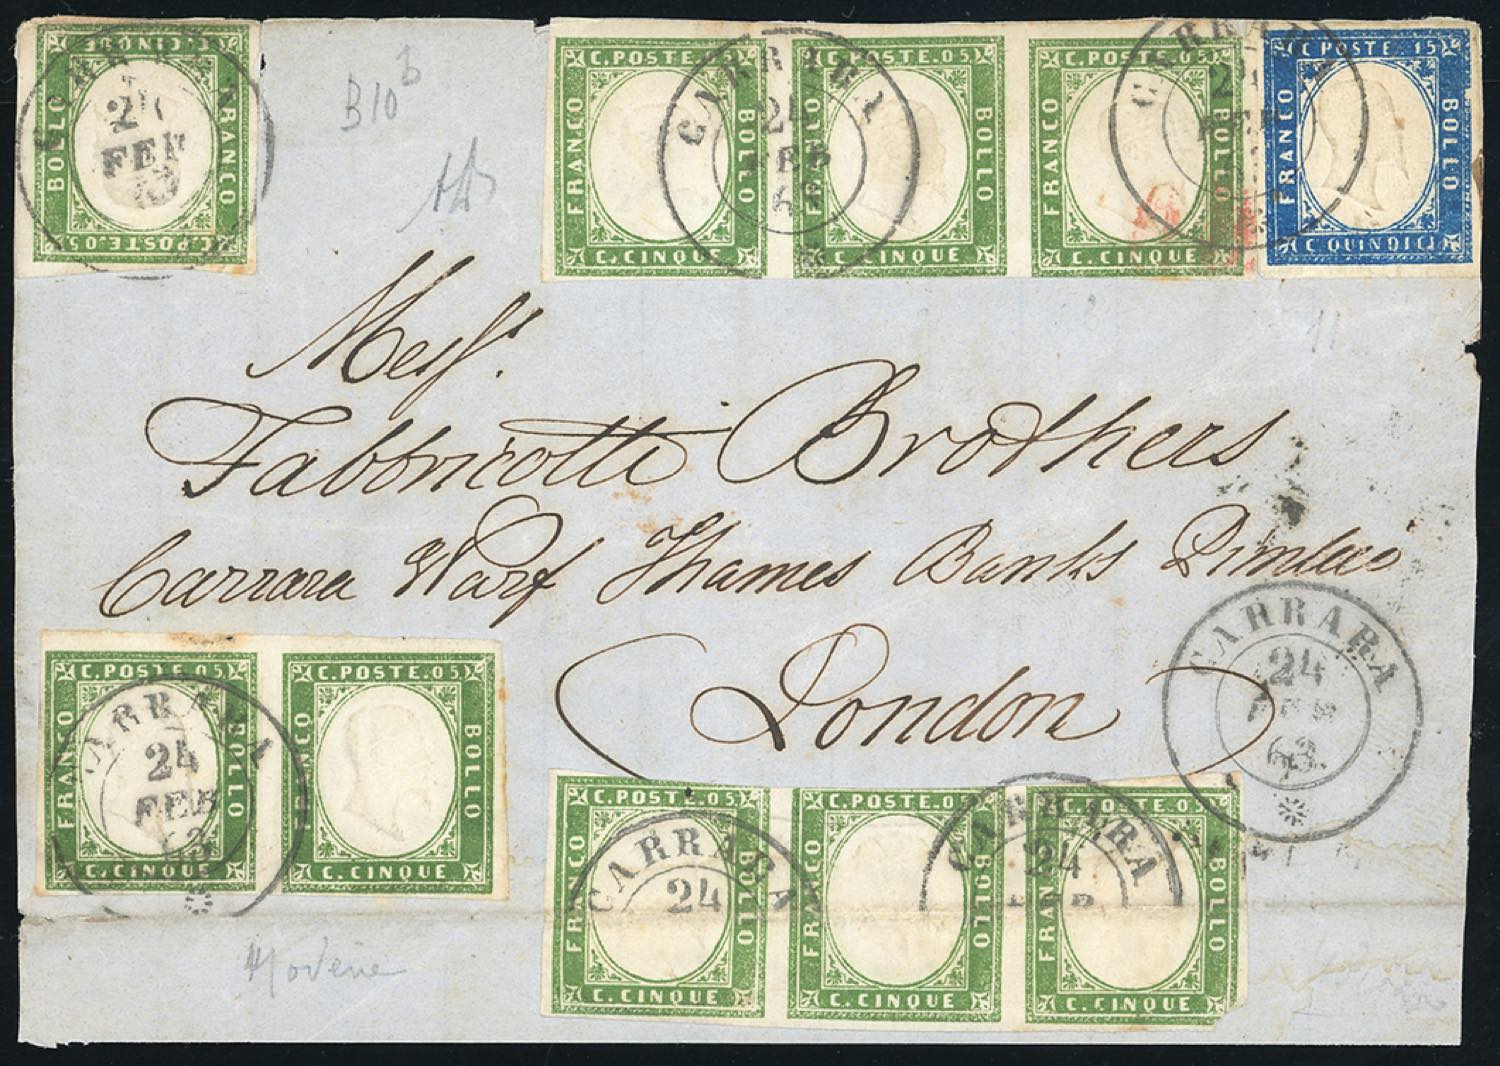 C. CINQUE
FRANCO BOLLO
C. POSTE. 05
24
FEB
B10 b
C. POSTE. 05 C. POSTE 05 C. POSTE 05 C. POSTE. 15
FRANCO BOLLO FRANCO BOLLO FRANCO BOLLO FRANCO BOLLO
C. CINQUE C. CINQUE C. CINQUE C QUINDICI
CARRARA
24
FEB
63
CARRARA
24
FEB
Mess.
Fabbricotti Brothers
Carrara Warf Thames Banks Pimlico
London
CARRARA
24
FEB
63
C. POSTE. 05 C. POSTE. 05
FRANCO BOLLO FRANCO BOLLO
C. CINQUE C. CINQUE
CARRARA
24
FEB
63
C. POSTE. 05 C. POSTE. 05 C. POSTE. 05
FRANCO BOLLO FRANCO BOLLO FRANCO BOLLO
C. CINQUE C. CINQUE C. CINQUE
CARRARA
24
CARRARA
24
FEB
Modène